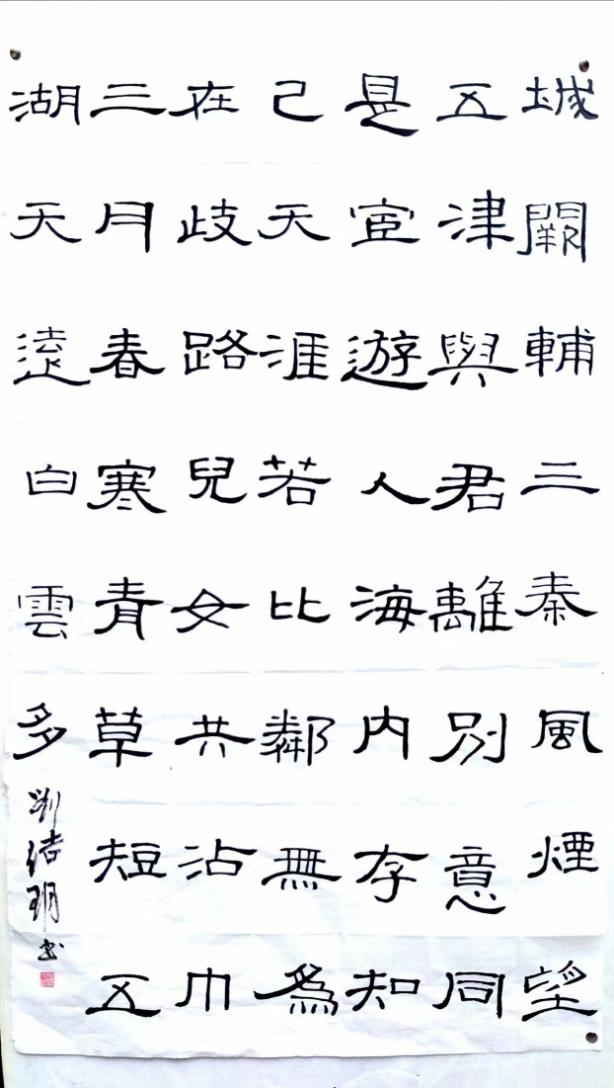 城闕輔三秦風煙望
五津與君離別意同
是宦遊人海内存知
己天涯若比鄰無為
在歧路兒女共沾巾
三月春寒青草短五
湖天遠白雲多
劉 玥书